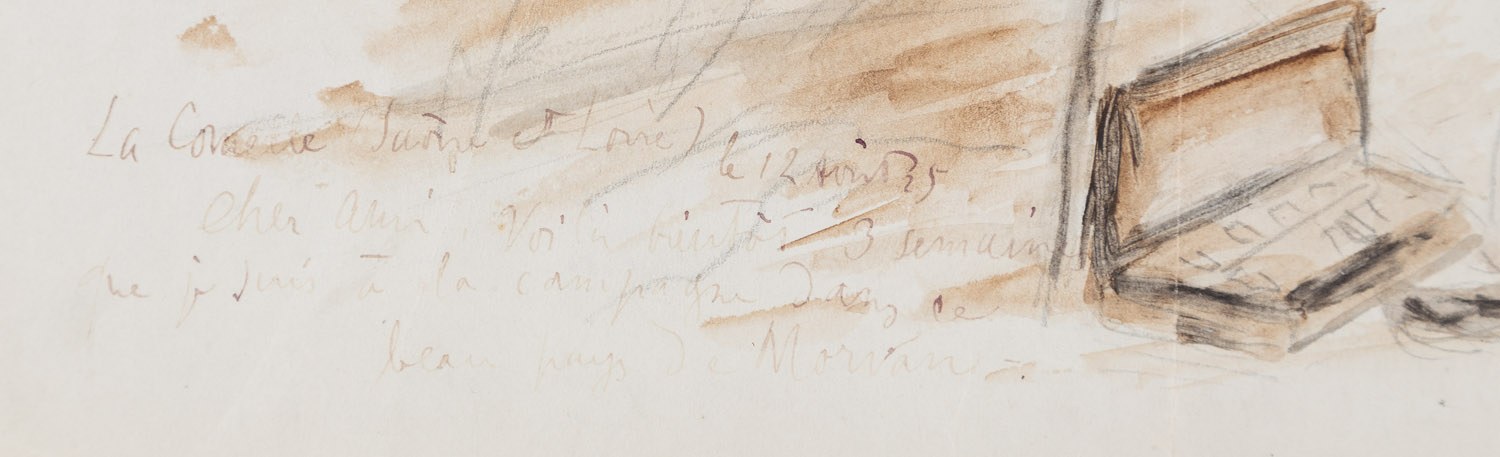 La Comelle (Saône et Loire)
le 12 Août 25
Cher Ami, Voilà bientôt 3 semaines
que je suis à la campagne dans ce
beau pays de Morvan